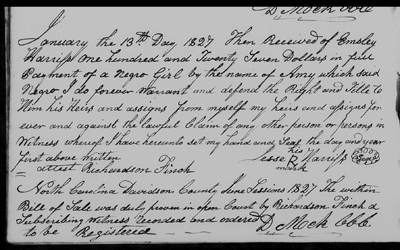 D Mock CCC
January the 13th Day 1827 Then Received of Emsley
Harriss One hundred and Twenty Seven Dollars in full
Payment of a Negro Girl by the name of Amy which said
Negro I do forever Warrant and defend the Right and Title to
him his Heirs and assigns from myself my heirs and assigns for
ever and against the lawful Claim of any other person or persons in
Witness whereof I have hereunto set my hand and Seal the day and year
first above written
his
Jesse Harriss Seal
mark
attest Richardson Finch
North Carolina Davidson County June Sessions 1827 The within
Bill of Sale was duly proven in open Court by Richardson Finch a
Subscribing Witness recorded and ordered
to be Registered
D Mock CCC